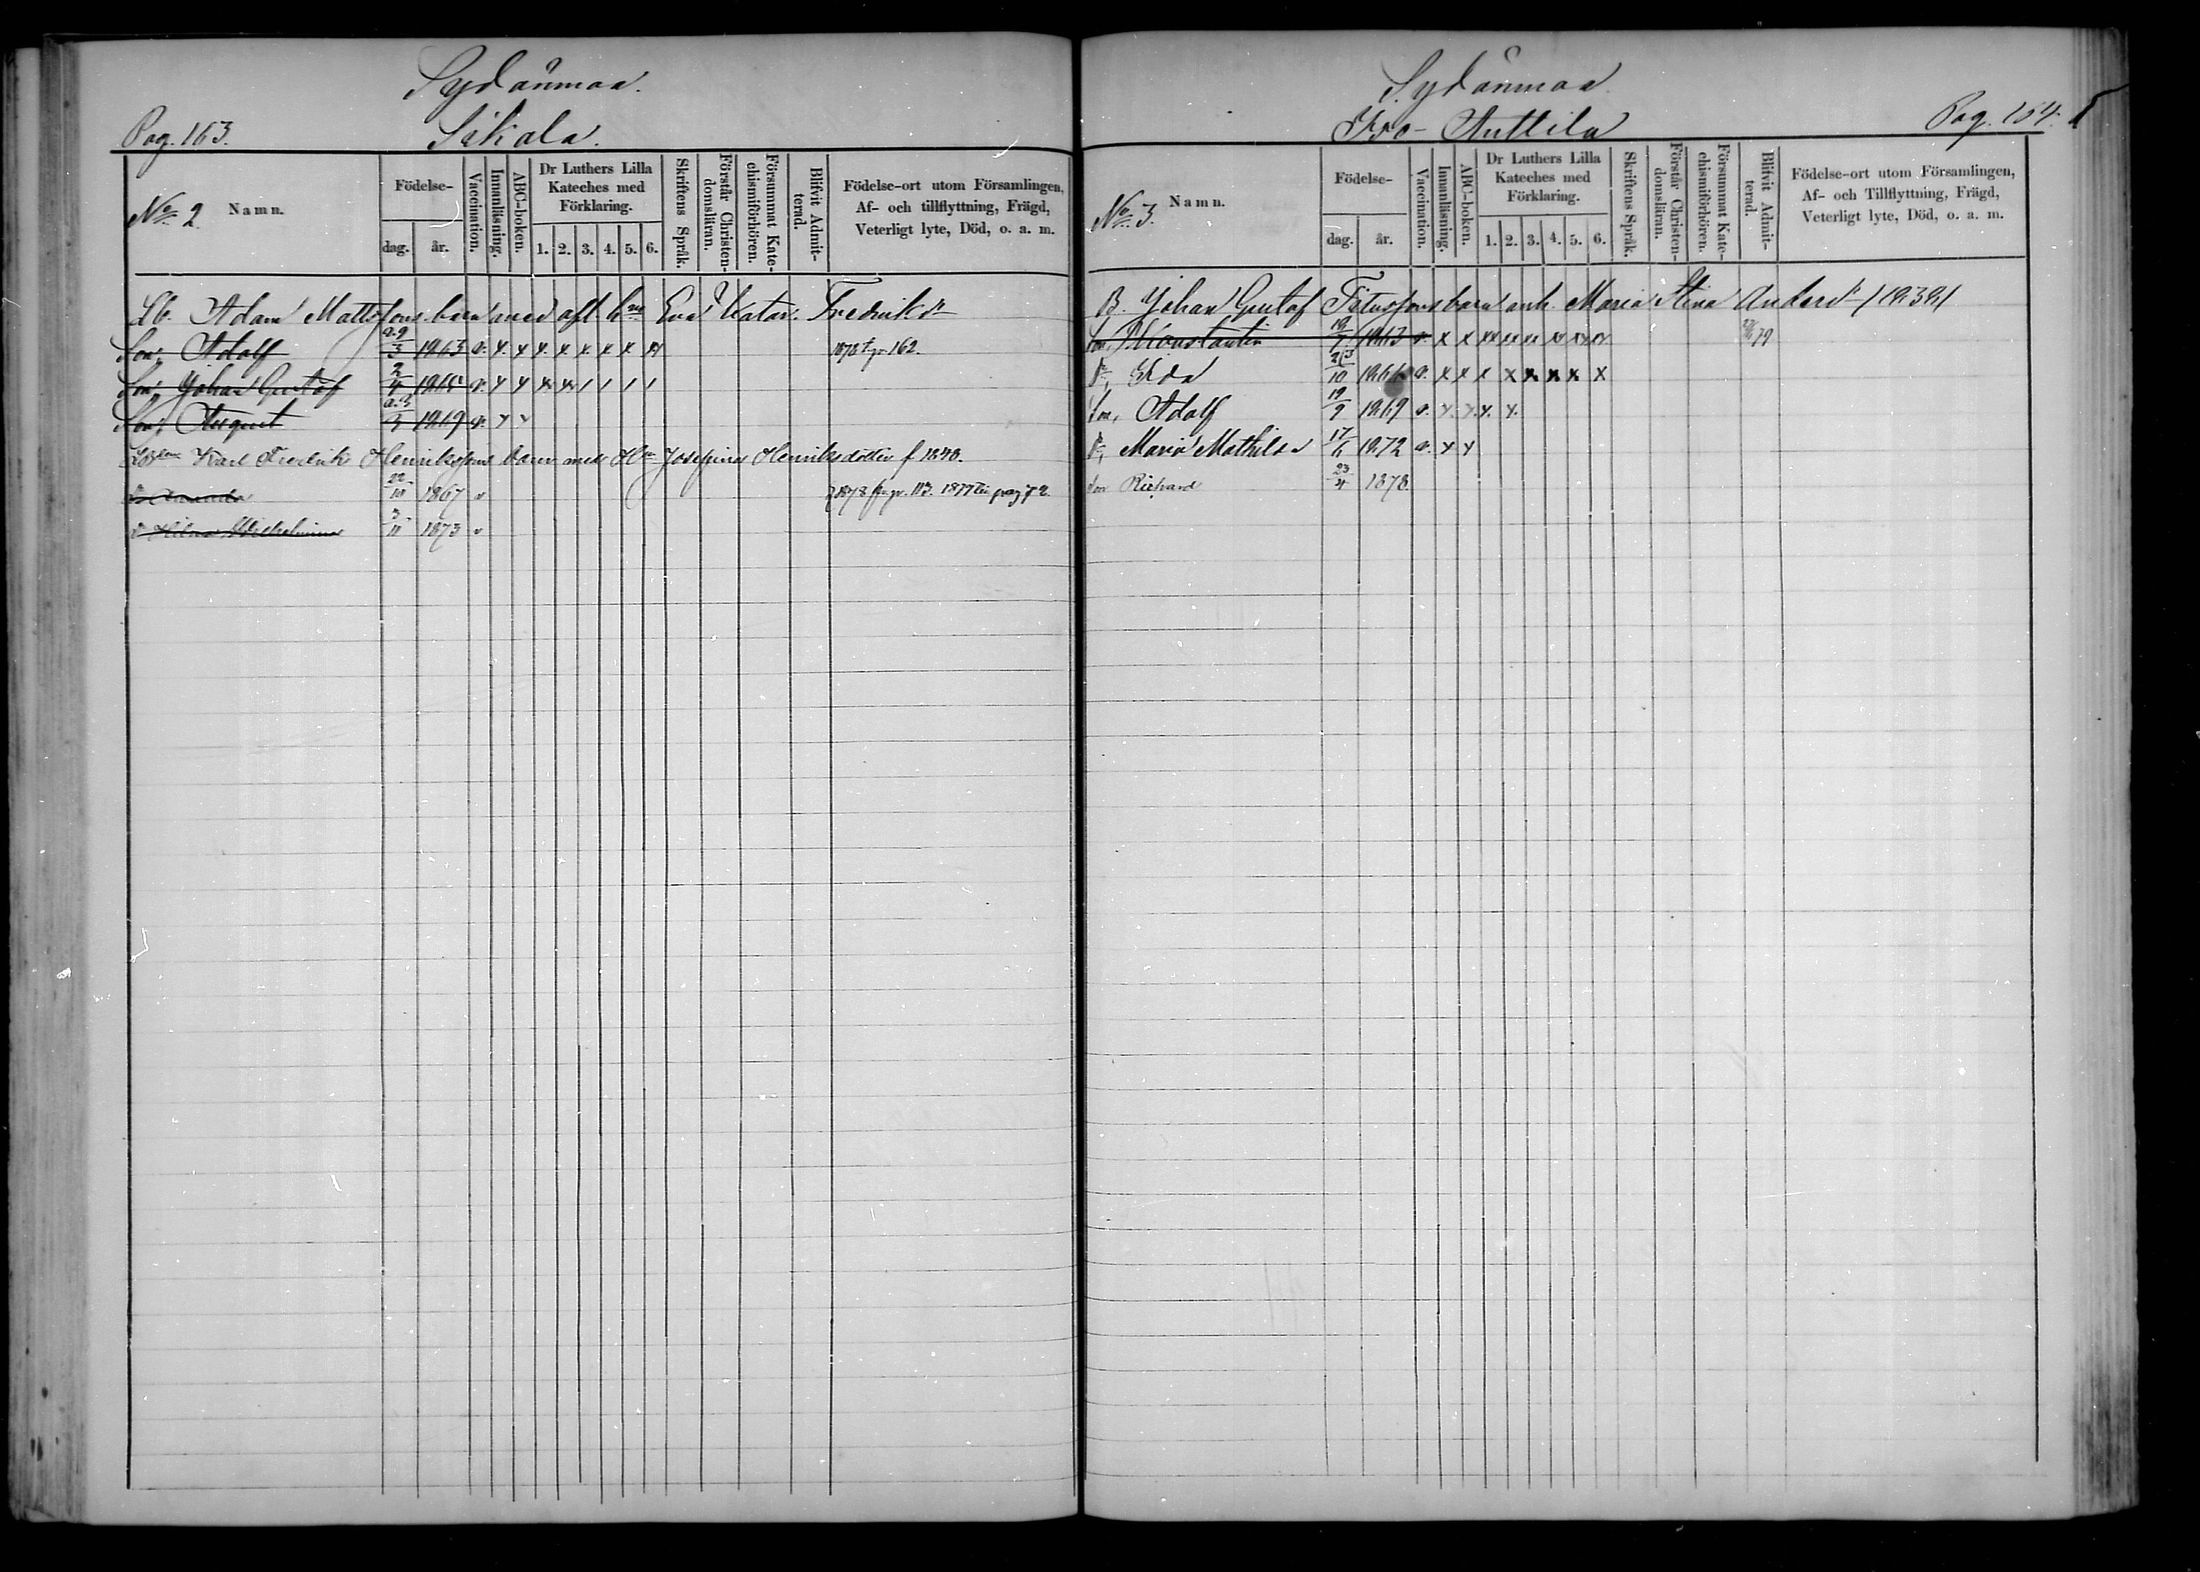 Sydänmaa.
Sikala.
Pag. 163.
No 2.
Namn.
Födelse-
dag.
år.
Vaccination.
Innanläsning.
ABC-boken.
Dr Luthers Lilla
Kateches med
Förklaring.
1. 2. 3. 4. 5. 6.
Skriftens Språk.
Förstår Christen-
domsläran.
Försummat Kate-
chismiförhören.
Blifvit Admit-
terad.
Födelse-ort utom Församlingen,
Af- och tillflyttning, Frägd,
Veterligt lyte, Död, o. a. m.
Adam Mattsfons barn med afl. Eva Katar. Fredriksdr
Son, Adolf 29/3 1863 v. x x x x x x x x 162.
Son, Johan Gustaf 2/4 1865 v. x x x x / / / /
Son, August 1869 v. x x
Karl Fredrik Henriksfons barn med Hu Josefina Henriksdotter f 1840.
22/10 1867 v 1878 fr. pr. 113. 1877 till pag 72
Wilhelmina 3/11 1873 v
Sydänmaa.
Iso-Anttila
Pag. 164.
No 3.
Namn.
Födelse-
dag.
år.
Vaccination.
Innanläsning.
ABC-boken.
Dr Luthers Lilla
Kateches med
Förklaring.
1. 2. 3. 4. 5. 6.
Skriftens Språk.
Förstår Christen-
domsläran.
Försummat Kate-
chismiförhören.
Blifvit Admit-
terad.
Födelse-ort utom Församlingen,
Af- och Tillflyttning, Frägd,
Veterligt lyte, Död, o. a. m.
B. Johan Gustaf Titusfons barn m. h. Maria Stina Andersdr /1839/
Son, Konstantin 1863 v. x x xx xx xx x xx xx 79
Dr, Ida 23/10 1866 v. x x x x x x x x
Son, Adolf 19/9 1869 v. x x x x
Dr, Maria Mathilda 17/6 1872 v. x x
Son Richard 23/4 1878.